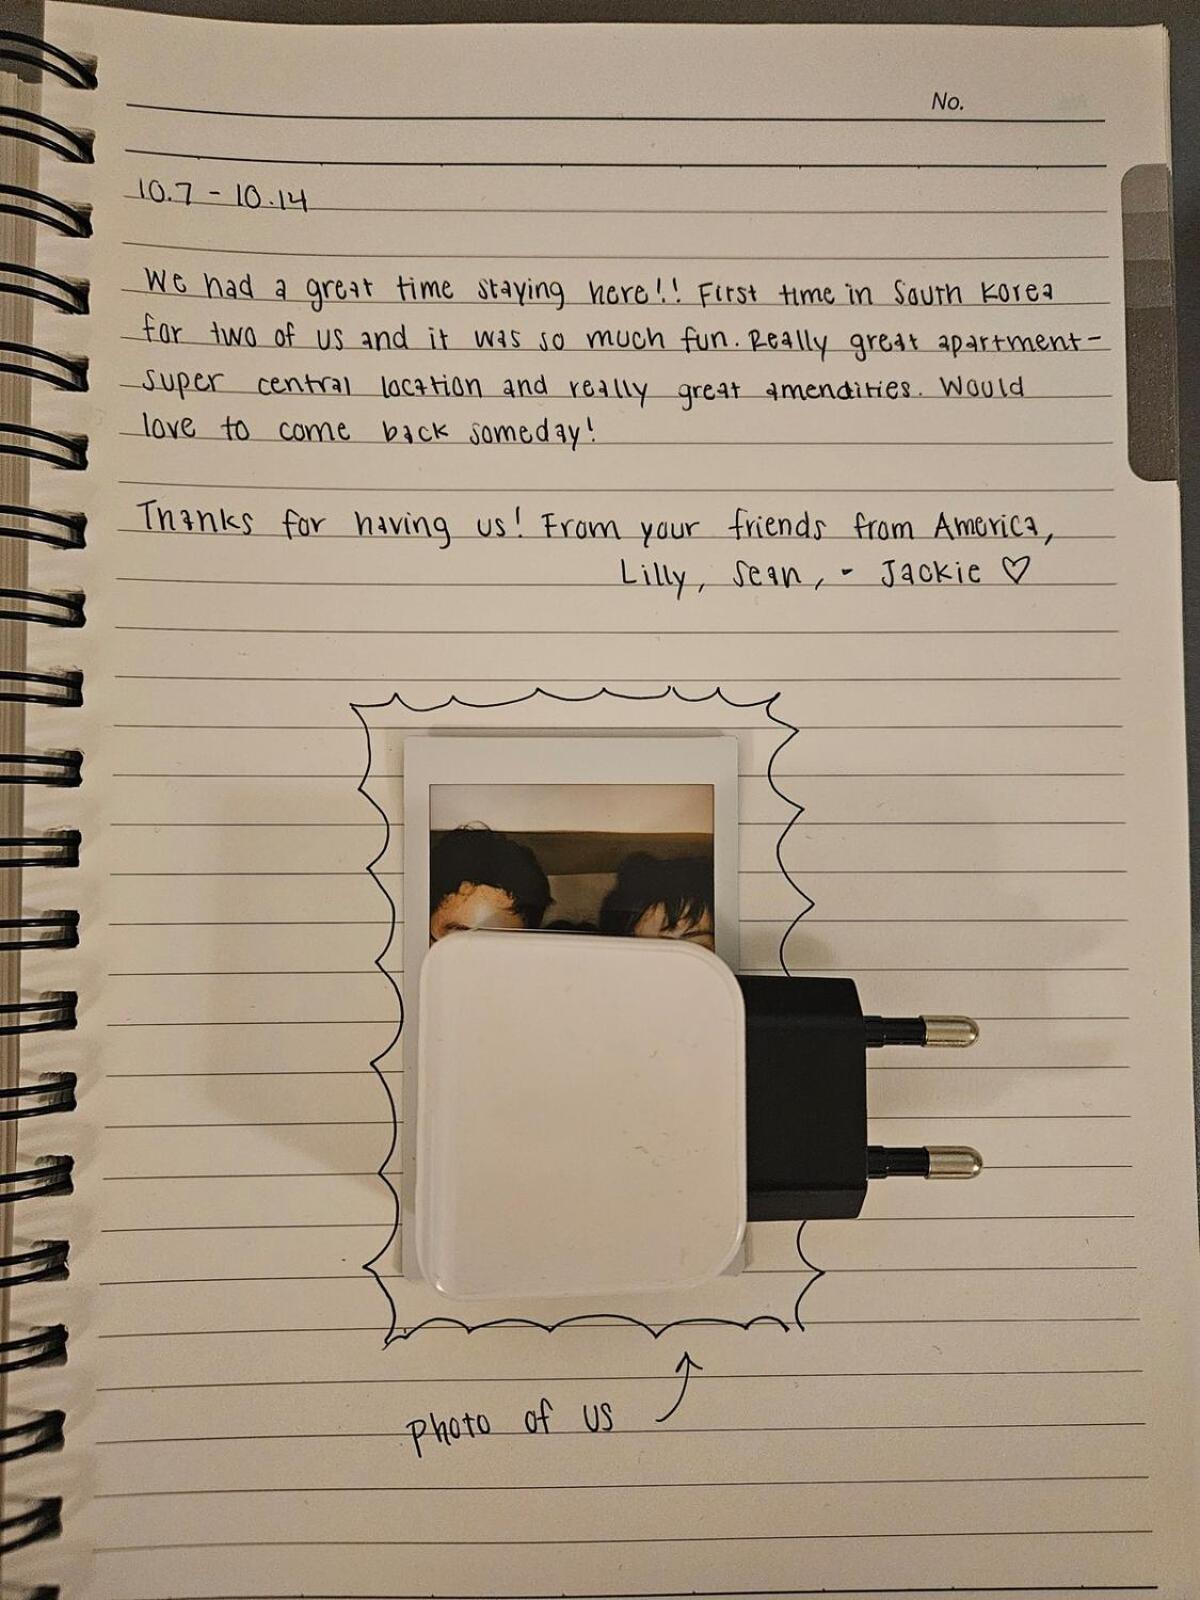 No.
10.7 - 10.14
We had a great time staying here!! First time in South Korea
for two of us and it was so much fun. Really great apartment-
super central location and really great amendities. Would
love to come back someday!
Thanks for having us! From your friends from America,
Lilly, Sean, - Jackie ♡
photo of us